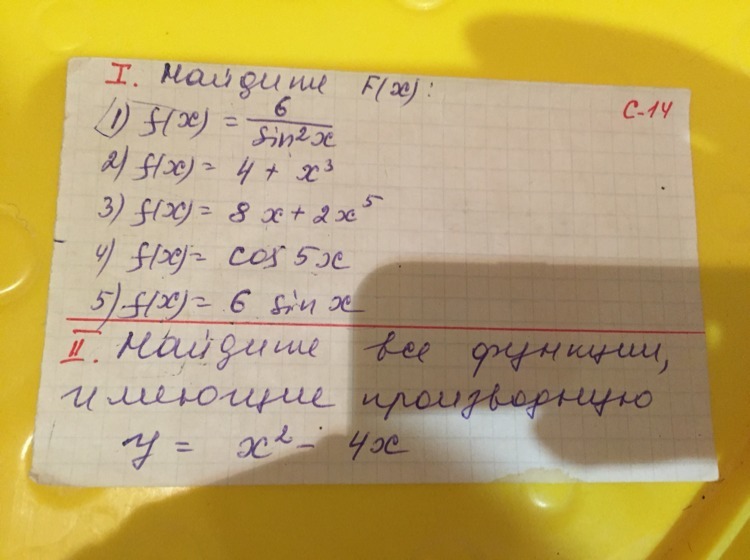 I. Найдите F(x):
С-14
1) f(x) = 6/sin²x
2) f(x) = 4 + x³
3) f(x) = 8x + 2x⁵
4) f(x) = cos 5x
5) f(x) = 6 sin x
II. Найдите все функции,
имеющие производную
y = x² - 4x